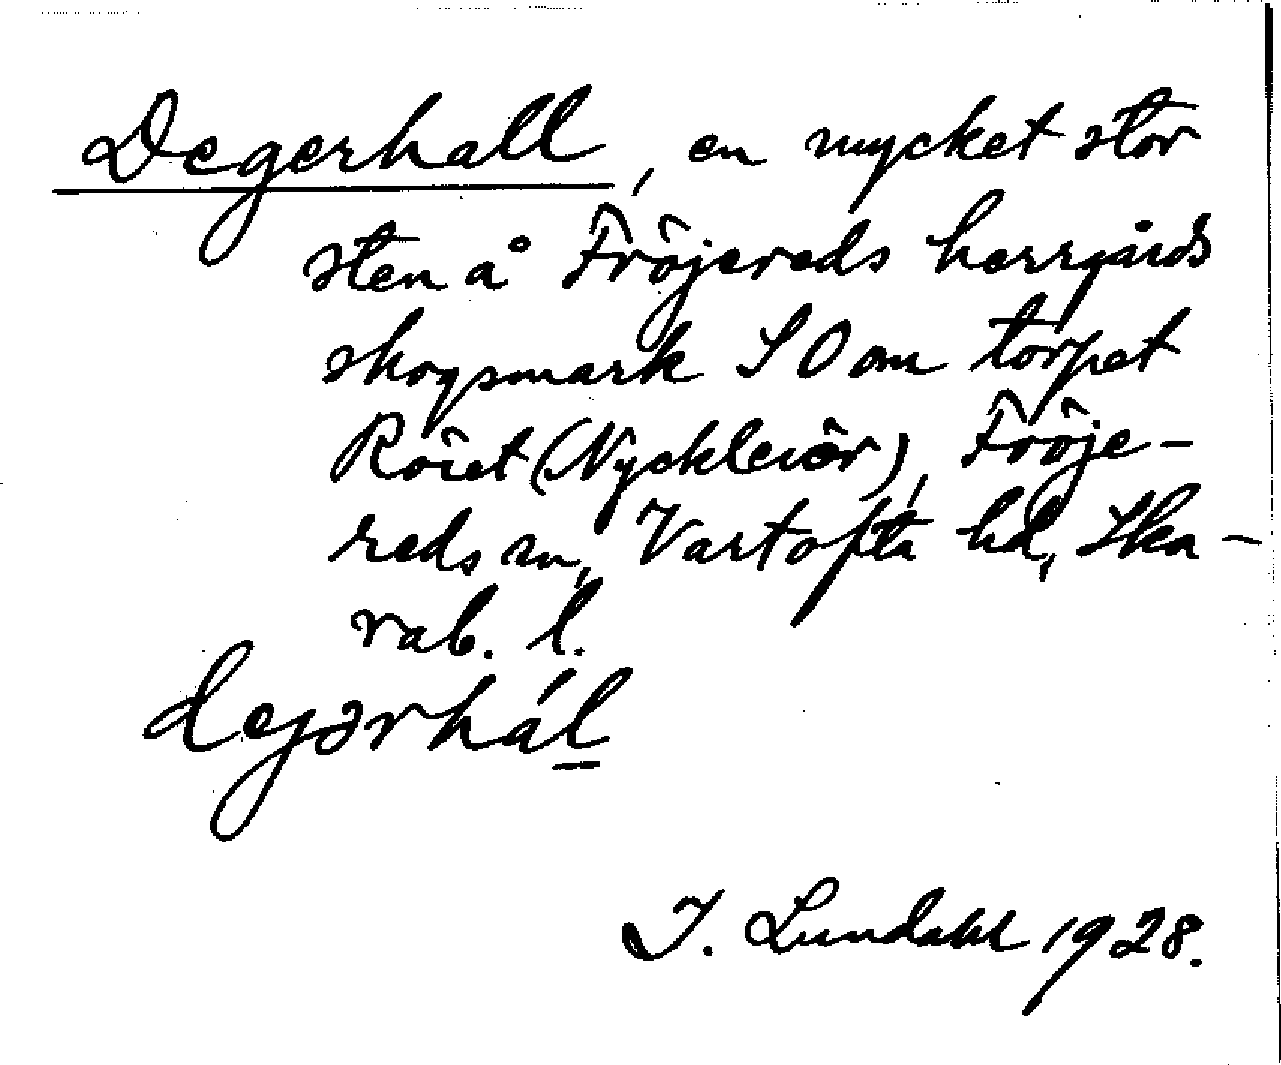 Degerhall, en mycket stor
sten å Fröjereds herrgårds
skogsmark SO om torpet
Röiet (Nyckleiör), Fröje-
reds sn, Vartofta hd, Ska-
rab. l.
dejərhál
I. Lundahl 1928.